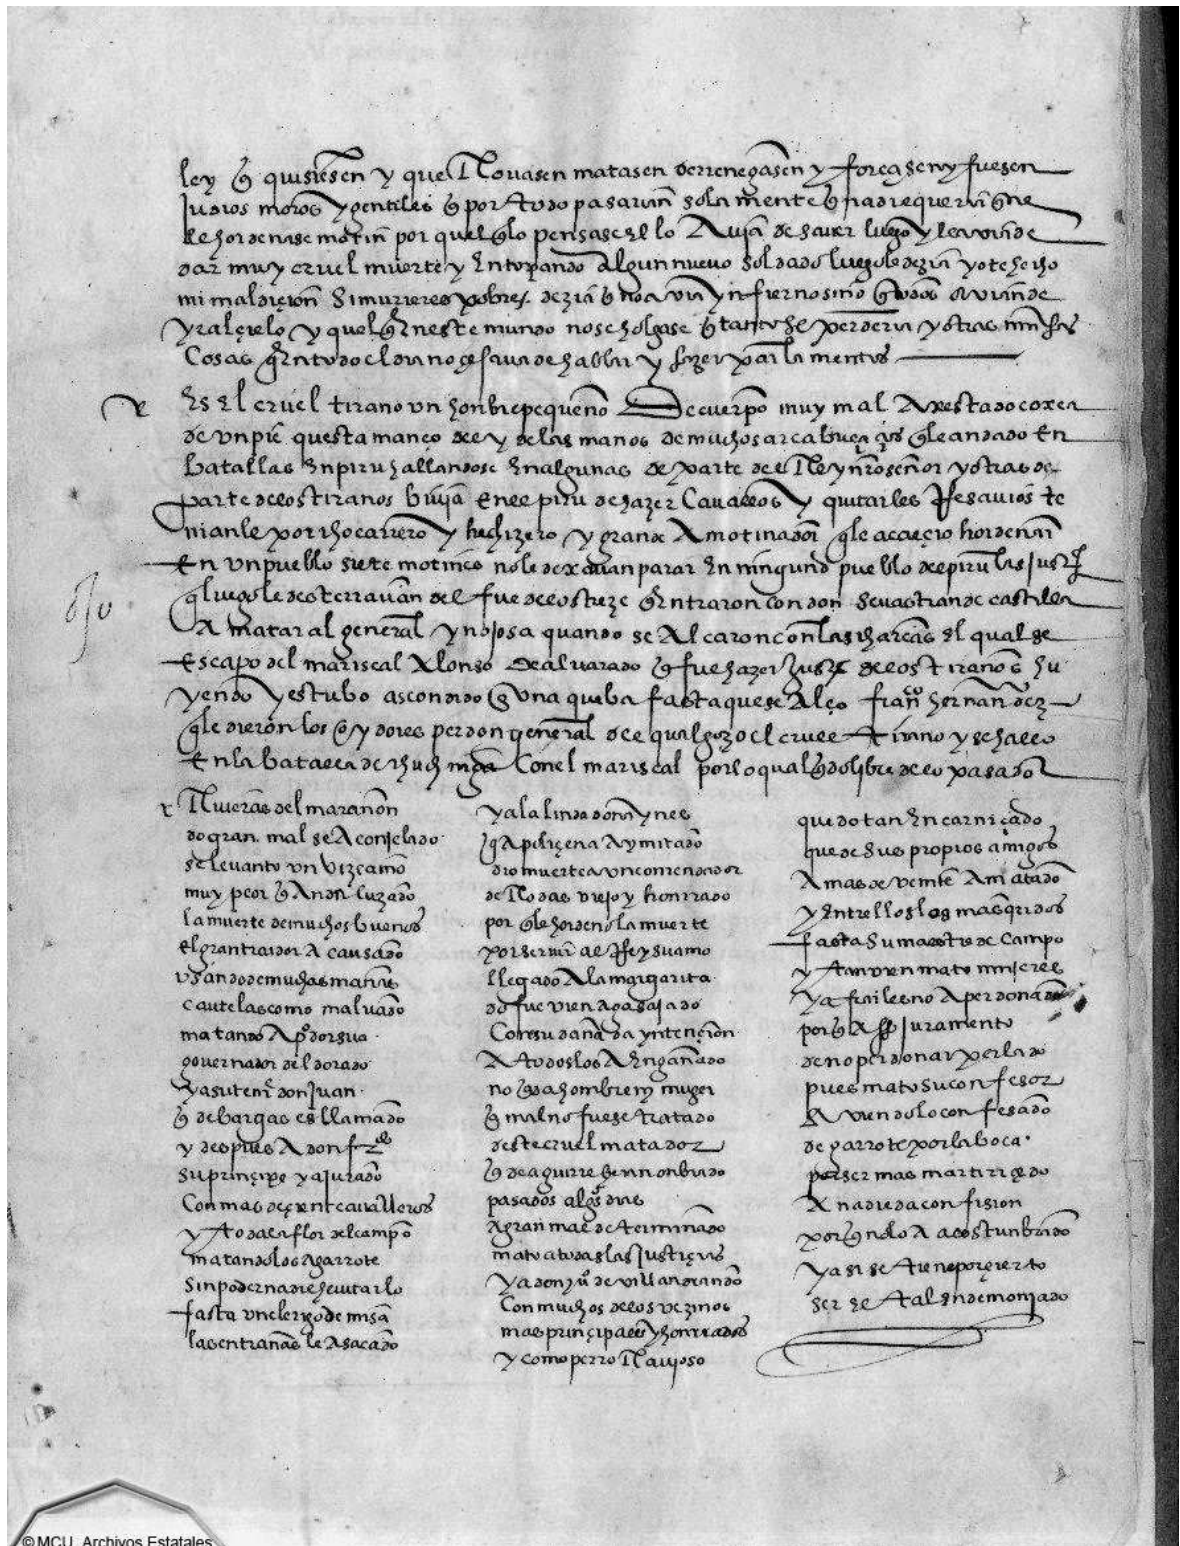 ley q quisiesen y que Rovasen matasen derrenegasen y forçasen y fuesen
Judios moros y gentiles q por todo pasarian solamente q nadie queria q ne
le hordenase motin por quel q lo pensase el lo Avia de saver luego y le avia de
dar muy cruel muerte y En topando Algun nuevo soldado luego le dezia yo te hecho
mi maldiçion Si murieres pobre dezia q no avia ynfierno sino q todos avian de
yr al çielo y quel q En este mundo no se holgase q tanto se perderia y otras
Cosas q En todo el dia no çesava de hablar y hazer parlamentos
Es El cruel tirano un honbre pequeño De cuerpo muy mal Agestado coxea
de un pie questa manco del y de las manos de muchos arcabuçaços q le an dado En
batallas En piru hallandose En algunas de parte del Rey nro señor y otras de
parte de los tiranos bivia En el piru de hazer Cavallos y quitarles Resavios te
nianle por chocarrero y hechizero y grande Amotinador q le acaeçio hordenar
En un pueblo siete motines no le dexavan parar En ningund pueblo del piru las
q luego le desterravan del fue de los treze q Entraron con don Sevastian de castilla
A matar al general ynojosa quando se Alçaron con las charcas El qual se
Escapo del mariscal Alonso de alvarado q fue hazer de los tiranos hu
yendo y estubo ascondido En una queba fasta que se Alço franco hernandez
q le dieron los oydores perdon general del qual gozo el cruel tirano y se hallo
En la batalla de Con el mariscal por lo qual qdo libre de lo pasado
Riveras del marañon
do gran mal se A conjelado
se levanto un vizcaino
muy peor q Andaluzado
la muerte de muchos buenos
el gran traidor A causado
usando de muchas mañas
cautelas como malvado
matando A pº dorsua
governador del dorado
y a su teniᵉ don Juan
q de bargas es llamado
y despues A don frdo
su prinçipe ya jurado
Con mas de çient cavalleros
y toda la flor del campo
matandolos a garrote
sin poder nadie hevitarlo
fasta un clerigo de misa
las entrañas le A sacado
y a la linda doña ynes
q A poliçena A ymitado
dio muerte a un comendador
de Rodas viejo y honrrado
por q le hordeno la muerte
por servir al Rey su amo
llegado A la margarita
do fue vien agasajado
Con su dañada yntençion
A todos los A Engañado
no qda hombre ni muger
q mal no fuese tratado
deste cruel matador
q de aguirre Es nonbrado
pasados algos dias
a gran mal determinado
mato a todas las Justiçias
y a don juº de villandrando
Con muchos de los vezinos
mas prinçipales y honrrados
y como perro Ravioso
quedo tan Encarniçado
que de sus propios amigos
A mas de veinte A matado
y Entrellos los mas qridos
fasta Su maestre de Campo
y tanvien mato mujeres
y a frailes no A perdonado
por q A fho juramento
de no perdonar perlado
pues mato su confesor
Aviendolo confesado
de garrote por la boca
por ser mas martirizado
A nadie da confision
por q no lo A acostunbrado
y asi se tiene por çierto
ser el tal Endemoniado
© MCU. Archivos Estatales